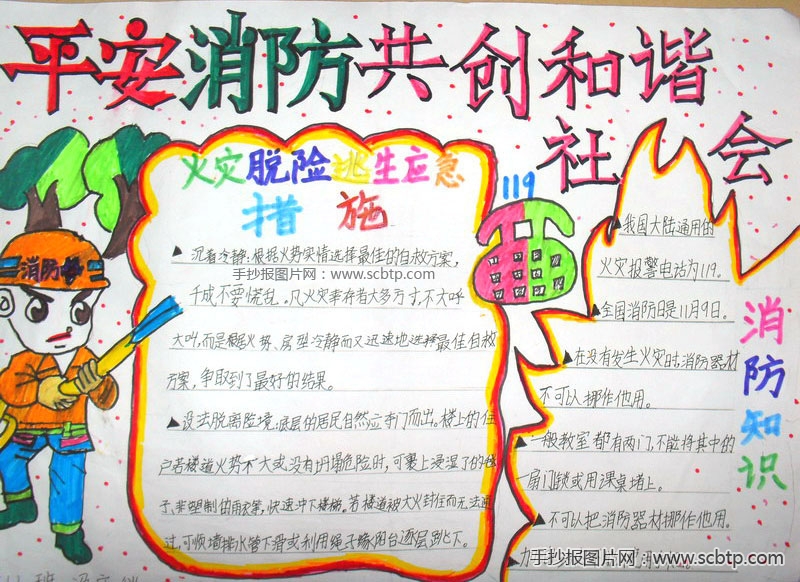 平安消防共创和谐
社会
火灾脱险逃生应急
措施
▲沉着冷静:根据火势实情选择最佳的自救方案,
手抄报图片网:www.scbtp.com
千成不要慌乱。凡火灾幸存者大多方寸,不大呼
大叫,而是根据火势、房型冷静而又迅速地选择最佳自救
方案,争取到了最好的结果。
▲设法脱离险境:底层的居民自然应夺门而出。楼上的住
户若楼道火势不大或没有坍塌危险时,可裹上浸湿了的毯
子、非塑制的雨衣等,快速冲下楼梯。若楼道被大火封住而无法通
过,可顺墙排水管下滑或利用绳子缘阳台逐层跳下。
119
▲我国大陆通用的
火灾报警电话为119。
▲全国消防日是11月9日。
▲在没有发生火灾时,消防器材
不可以挪作他用。
▲一般教室都有两门,不能将其中的
一扇门锁或用课桌堵上。
▲不可以把消防器材挪作他用。
消防知识
消防
手抄报图片网:www.scbtp.com